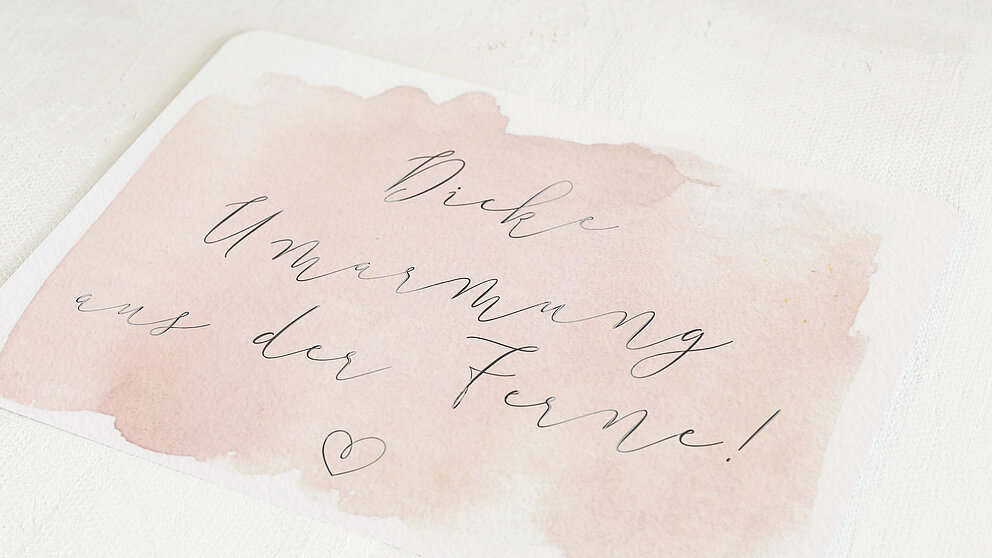 Dicke
Umarmung
aus der Ferne!